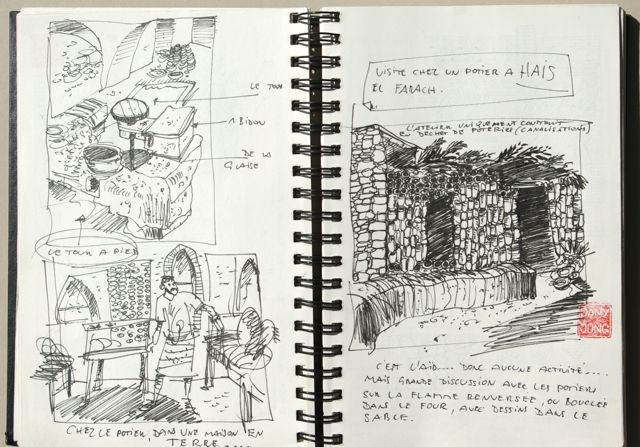 LE TOUR
1 BIDON
DE LA
GLAISE
LE TOUR A PIED
CHEZ LE POTIER, DANS UNE MAISON EN
TERRE....
VISITE CHEZ UN POTIER A HAIS
EL FARACH.
L'ATELIER UNIQUEMENT CONSTRUIT
EN DECHET DE POTERIES (CANALISATIONS)
DANY
JONG
C'EST L'AID.... DONC AUCUNE ACTIVITÉ....
MAIS GRANDE DISCUSSION AVEC LES POTIERS
SUR LA FLAMME RENVERSEE, OU BOUCLEE
DANS LE FOUR, AVEC DESSINS DANS LE
SABLE.